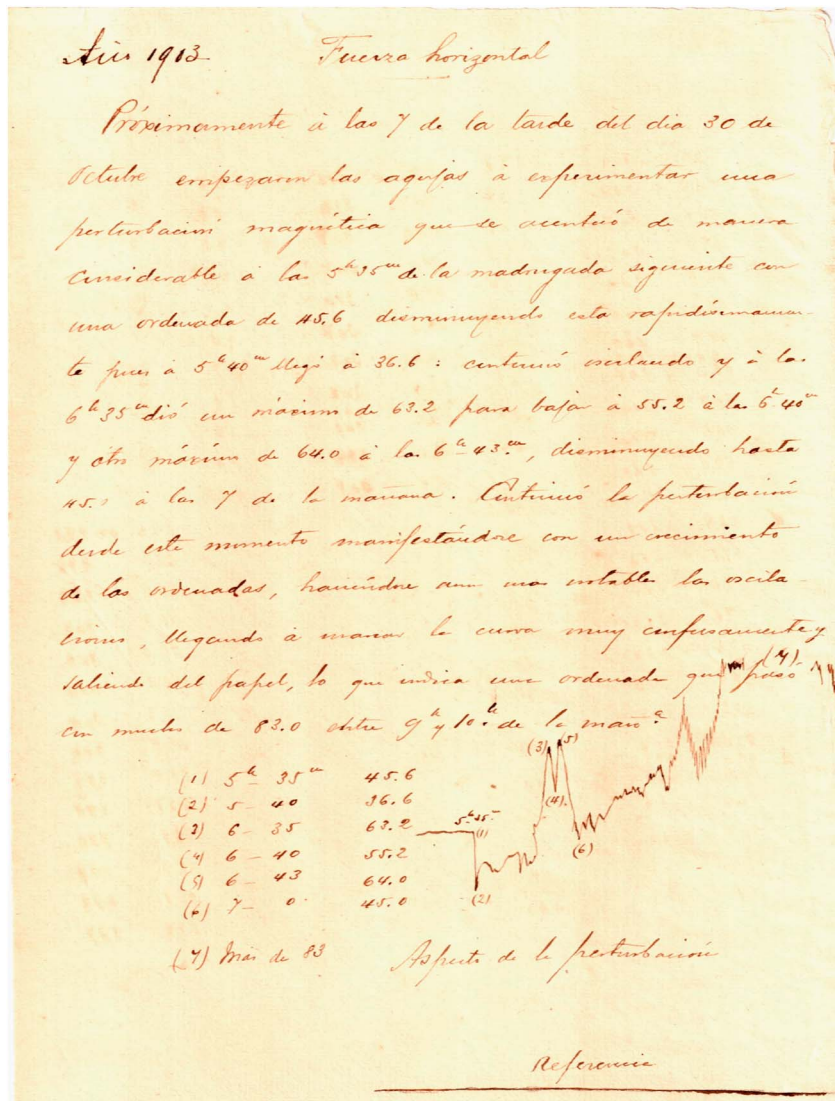 Año 1903 Fuerza horizontal
Próximamente á las 7 de la tarde del dia 30 de
Octubre empezaron las agujas á experimentar una
perturbación magnética que se acentuó de manera
considerable á las 5ʰ 35ᵐ de la madrugada siguiente con
una ordenada de 45.6 disminuyendo esta rapidísimamen-
te pues á 5ʰ 40ᵐ llegó á 36.6 : continuó oscilando y á las
6ʰ 35ᵐ dió un máximo de 63.2 para bajar á 55.2 á las 6ʰ 40ᵐ
y otro máximo de 64.0 á las 6ʰ 43ᵐ, disminuyendo hasta
45.0 á las 7 de la mañana. Continuó la perturbación
desde este momento manifestándose con un crecimiento
de las ordenadas, haciéndose aun mas notables las oscila-
ciones, llegando á marcar la curva muy confusamente y
saliendo del papel, lo que indica una ordenada que pasó
con mucho de 83.0 entre 9ʰ y 10ʰ de la mañᵃ
(7)
(3) (5)
(1) 5ʰ 35ᵐ 45.6
(2) 5 - 40 36.6
(4)
(3) 6 - 35 63.2 5ʰ35ᵐ (1)
(4) 6 - 40 55.2 (6)
(5) 6 - 43 64.0
(6) 7 - 0 45.0 (2)
(7) Más de 83 Aspecto de la perturbación
Referencia